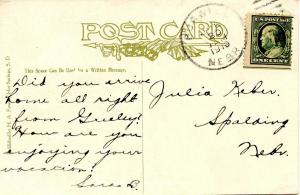 POST CARD
This Space Can Be Used for a Written Message.
NEBR.
U.S. POSTAGE
ONE CENT
Did you arrive
home all right
from Greeley?
How are you
enjoying your
vacation?
Sara B.
Julia Keber.
Spalding
Nebr.